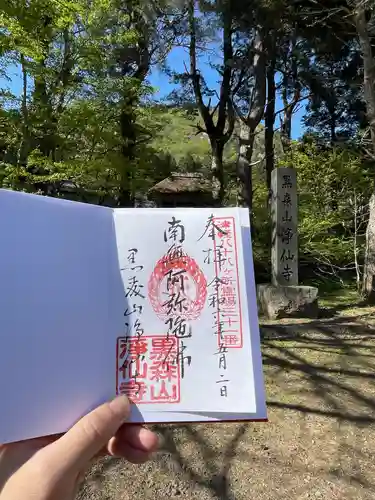 奉拝 令和六年五月二日
南無阿弥陀佛
黒森山淨仙寺
黒森山
浄仙寺
黒森山淨仙寺